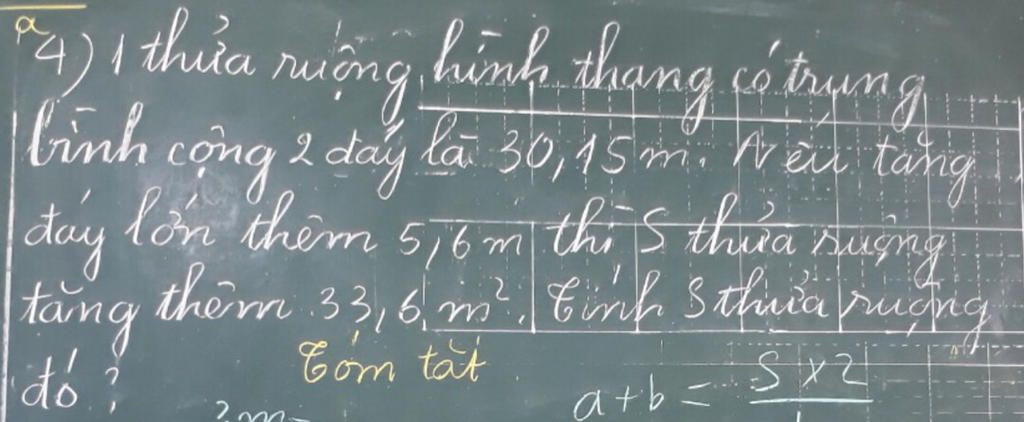 a
4) 1 thửa ruộng hình thang có trung
bình cộng 2 đáy là 30,15 m. Nếu tăng
đáy lớn thêm 5,6 m thì S thửa ruộng
tăng thêm 33,6 m². Tính S thửa ruộng
đó ?
Tóm tắt
a + b = S x 2